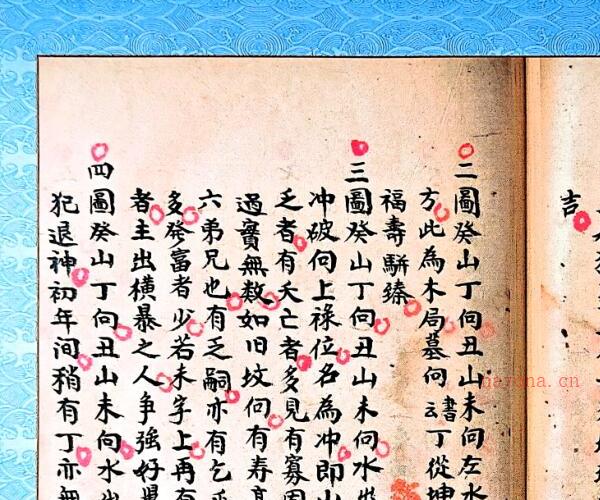 吉
二圖癸山丁向丑山未向左水
方此為木局墓向書云丁從坤
福壽駢臻
三圖癸山丁向丑山未向水
冲破向上祿位名為冲即山
乏者有夭亡者多見有寡
過實無数如旧坟向有寿高
六弟兄也有乏嗣亦有乞
多發富者少若未字上再有
者主出横暴之人争強好
四圖癸山丁向丑山未向水出
犯退神初年间稍有丁亦無
nayona.cn